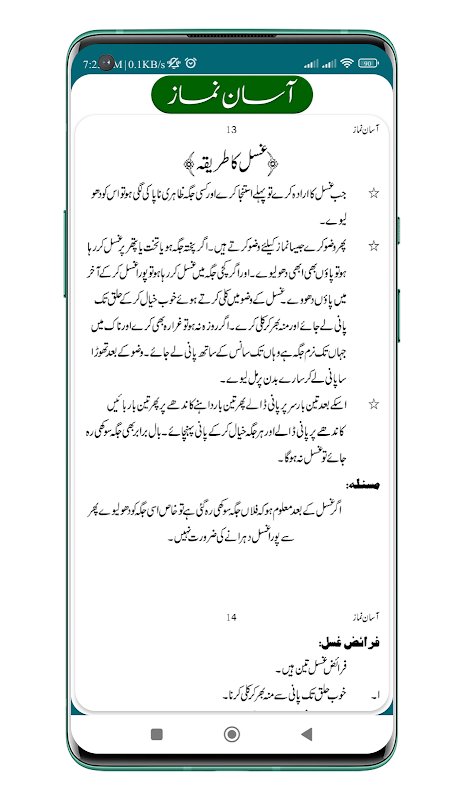 7:2 M | 0.1KB/s 90
آسان نماز
آسان نماز 13
﴿غسل کا طریقہ﴾
☆ جب غسل کا ارادہ کرے تو پہلے استنجا کرے اور کسی جگہ ظاہری ناپاکی لگی ہو تو اس کو دھو
لیوے۔
☆ پھر وضو کرے جیسا نماز کیلئے وضو کرتے ہیں۔ اگر پختہ جگہ ہو یا تخت یا پتھر پر غسل کر رہا
ہو تو پاؤں بھی ابھی دھو لیوے۔ اور اگر کچی جگہ میں غسل کر رہا ہو تو پورا غسل کر کے آخر
میں پاؤں دھووے۔ غسل کے وضو میں کلی کرتے ہوئے خوب خیال کر کے حلق تک
پانی لے جائے اور منہ بھر کر کلی کرے۔ اگر روزہ نہ ہو تو غرارہ بھی کرے اور ناک میں
جہاں تک نرم جگہ ہے وہاں تک سانس کے ساتھ پانی لے جائے۔ وضو کے بعد تھوڑا
سا پانی لے کر سارے بدن پر مل لیوے۔
☆ اسکے بعد تین بار سر پر پانی ڈالے پھر تین بار داہنے کاندھے پر پھر تین بار بائیں
کاندھے پر پانی ڈالے اور ہر جگہ خیال کر کے پانی پہنچائے۔ بال برابر بھی جگہ سوکھی رہ
جائے تو غسل نہ ہوگا۔
مسئلہ:
اگر غسل کے بعد معلوم ہو کہ فلاں جگہ سوکھی رہ گئی ہے تو خاص اسی جگہ کو دھو لیوے پھر
سے پورا غسل دہرانے کی ضرورت نہیں۔
آسان نماز 14
فرائض غسل:
فرائض غسل تین ہیں۔
۱۔ خوب حلق تک پانی سے منہ بھر کر کلی کرنا۔